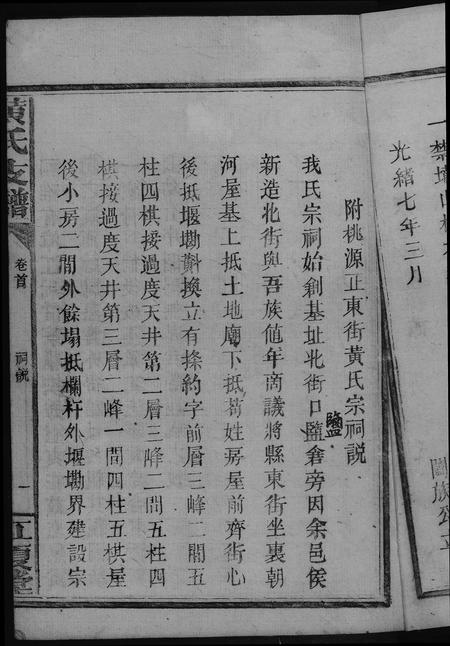 一禁墳山
光緒七年三月
闔族公立
附桃源正東街黃氏宗祠説
我氏宗祠始創基址北街口鹽倉旁因余邑侯
鹽
新造北街與吾族值年商議將縣東街坐裏朝
河屋基上抵土地廟下抵苟姓房屋前齊街心
後抵堰勘斢換立有條約字前層三峰二間五
柱四棋接過度天井第二層三峰二間五柱四
棋接過度天井第三層二峰一間四柱五棋屋
後小房二間外餘塌抵欄杆外堰勘界建設宗
黃氏支譜
卷首
祠說
一
五夏堂